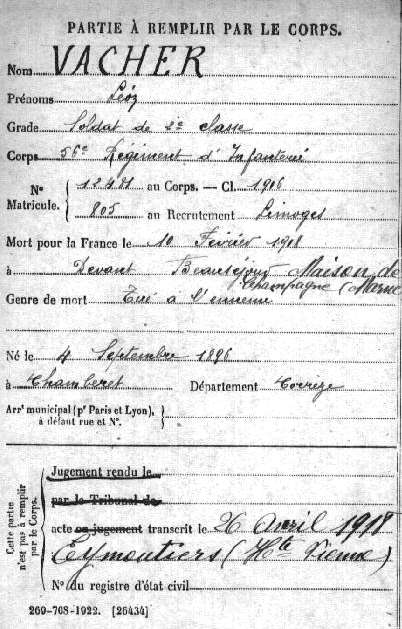 PARTIE À REMPLIR PAR LE CORPS.
Nom VACHER
Prénoms
Grade Soldat de 2e classe
Corps 56e Régiment d'Infanterie
N° Matricule. { 12481 au Corps. — Cl. 1916
805 au Recrutement Limoges
Mort pour la France le 10 Février 1918
à Devant Beauséjour Maison de
Champagne (Marne
Genre de mort Tué à l'ennemi
Né le 4 Septembre 1896
à Chamberet Département Corrèze
Arrt municipal (pr Paris et Lyon),
à défaut rue et N°.
Cette partie n'est pas à remplir par le Corps.
Jugement rendu le
par le Tribunal de
acte ou jugement transcrit le 26 Avril 1918
Eymoutiers (Hte Vienne)
N° du registre d'état civil
269-708-1922. [26434]